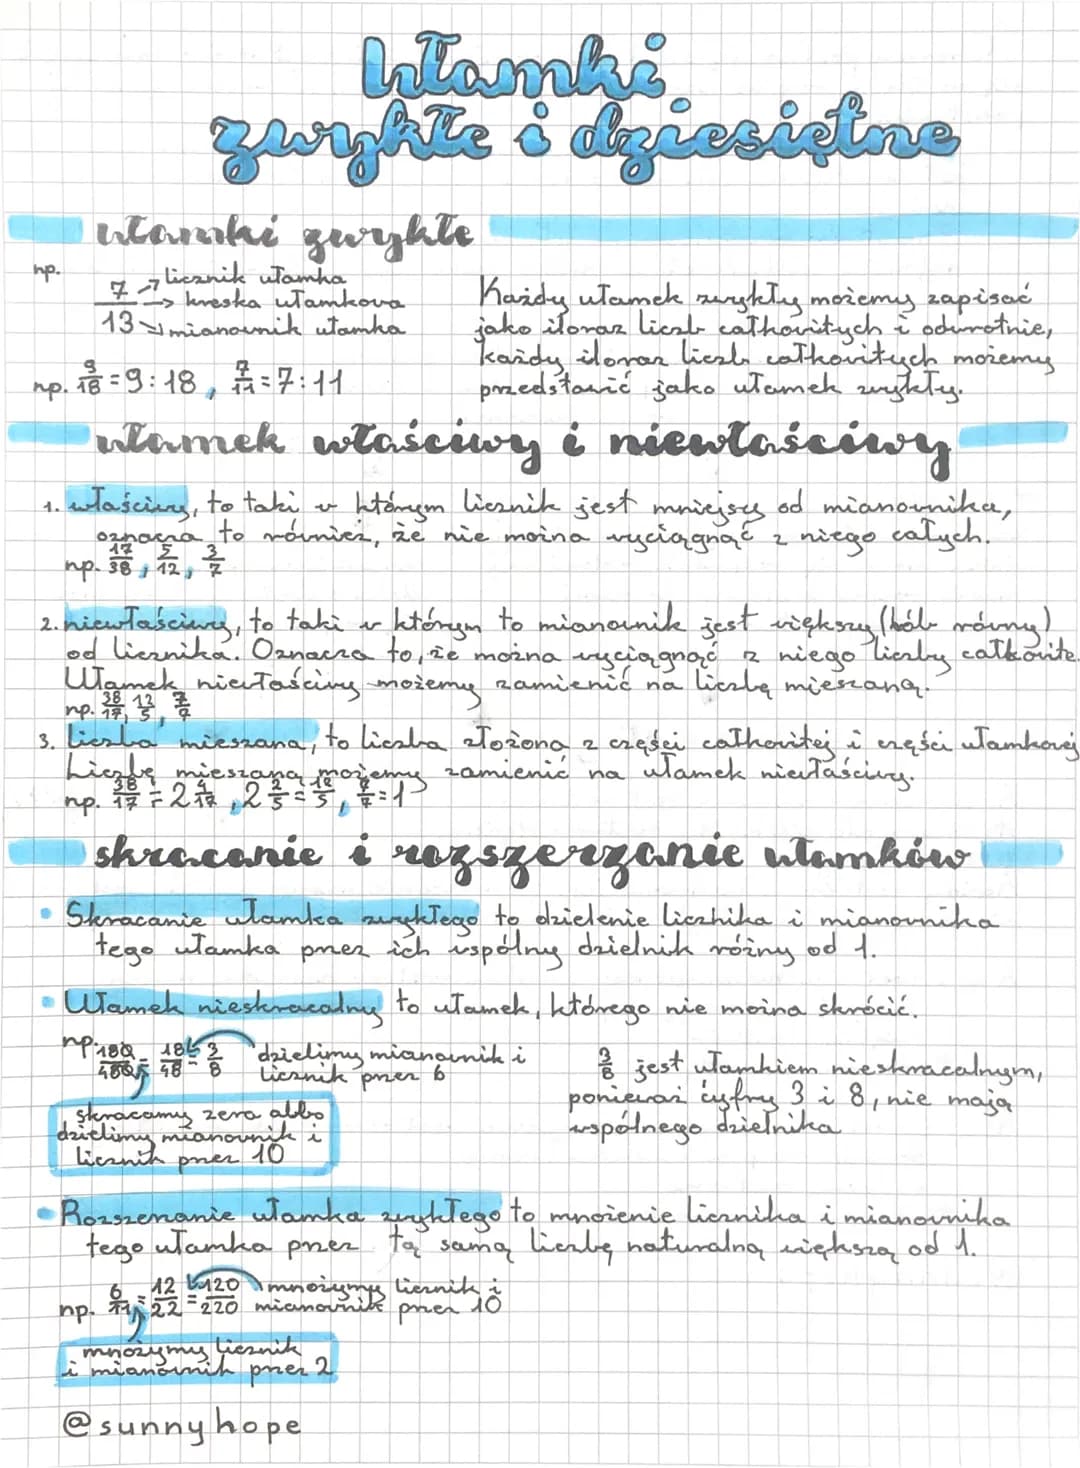 Ułamki
zwykłe i dziesiętne
ułamki zwykłe
np.
7 → licznik ułamka
→ kreska ułamkowa
13 → mianownik ułamka
np. 9/18 = 9:18, 7/11 = 7:11
Każdy ułamek zwykły możemy zapisać
jako iloraz liczb całkowitych i odwrotnie,
każdy iloraz liczb całkowitych możemy
przedstawić jako ułamek zwykły.
ułamek właściwy i niewłaściwy
1. właściwy, to taki w którym licznik jest mniejszy od mianownika,
oznacza to również, że nie można wyciągnąć z niego całych.
np. 17/38, 5/12, 3/7
2. niewłaściwy, to taki w którym to mianownik jest większy (lub równy)
od licznika. Oznacza to, że można wyciągnąć z niego liczby całkowite.
Ułamek niewłaściwy możemy zamienić na liczbę mieszaną.
np. 38/17, 12/5, 7/7
3. liczba mieszana, to liczba złożona z części całkowitej i części ułamkowej
Liczbę mieszaną możemy zamienić na ułamek niewłaściwy.
np. 38/17 = 2 4/17, 2 2/5 = 12/5, 7/7 = 1
skracanie i rozszerzanie ułamków
• Skracanie ułamka zwykłego to dzielenie licznika i mianownika
tego ułamka przez ich wspólny dzielnik różny od 1.
• Ułamek nieskracalny to ułamek, którego nie można skrócić.
np. 180/480 = 18/48 = 3/8 dzielimy mianownik i
licznik przez 6
skracamy zera albo
dzielimy mianownik i
licznik przez 10
3/8 jest ułamkiem nieskracalnym,
ponieważ cyfry 3 i 8, nie mają
wspólnego dzielnika
• Rozszerzanie ułamka zwykłego to mnożenie licznika i mianownika
tego ułamka przez tą samą liczbę naturalną większą od 1.
np. 6/11 = 12/22 = 120/220 mnożymy licznik i
mianownik przez 10
mnożymy licznik
i mianownik przez 2
@sunnyhope